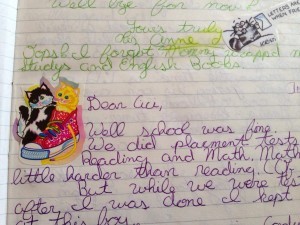 Well bye for now!
Yours truly
Anne
I forgot
Studys and English Books.
LETTERS ARE
WHEN FRIE
Dear Cici,
Well school was fine.
We did placment tests
Reading and Math. Math
little harder than reading. Of
But while we were test
after I was done I kept
at this boy